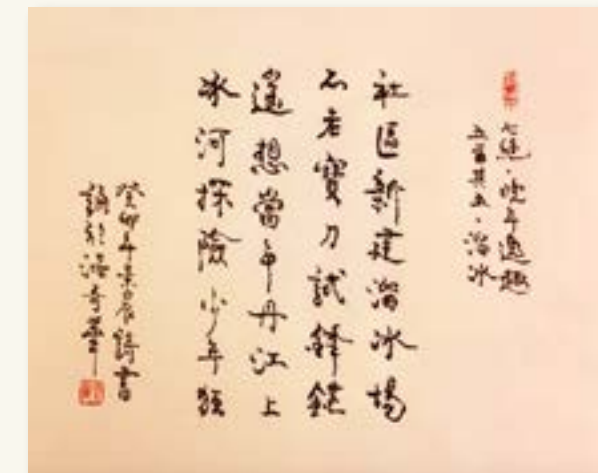 七绝·晚年逸趣
五首其五·溜冰
社區新建溜冰場
不老寶刀試鋒鋩
遙想當年丹江上
冰河探險少年狂
癸卯年吴辰錡書